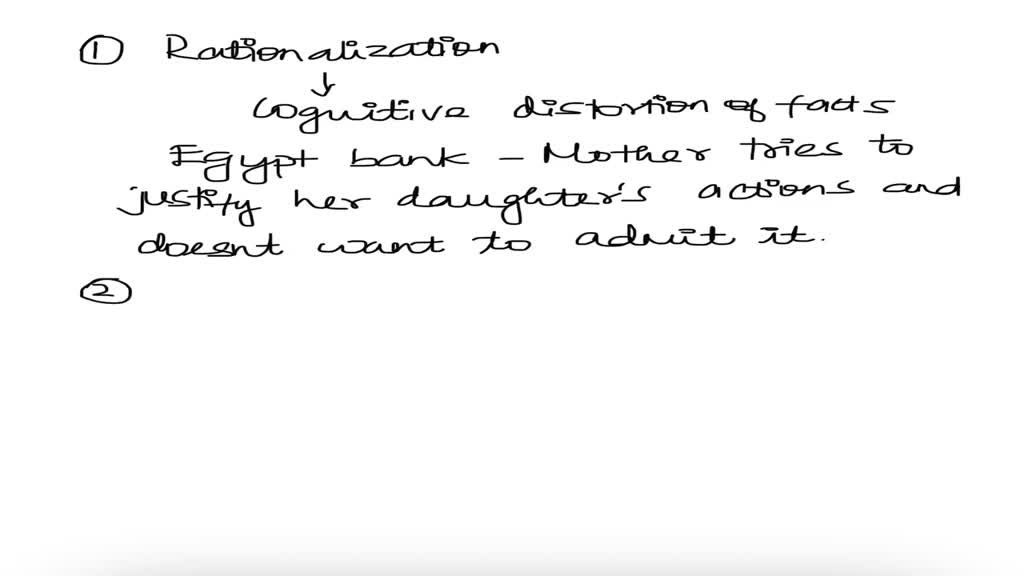 ① Rationalization
↓
Cognitive distortion of facts
Egypt bank - Mother tries to
justify her daughter's actions and
doesnt want to admit it.
②